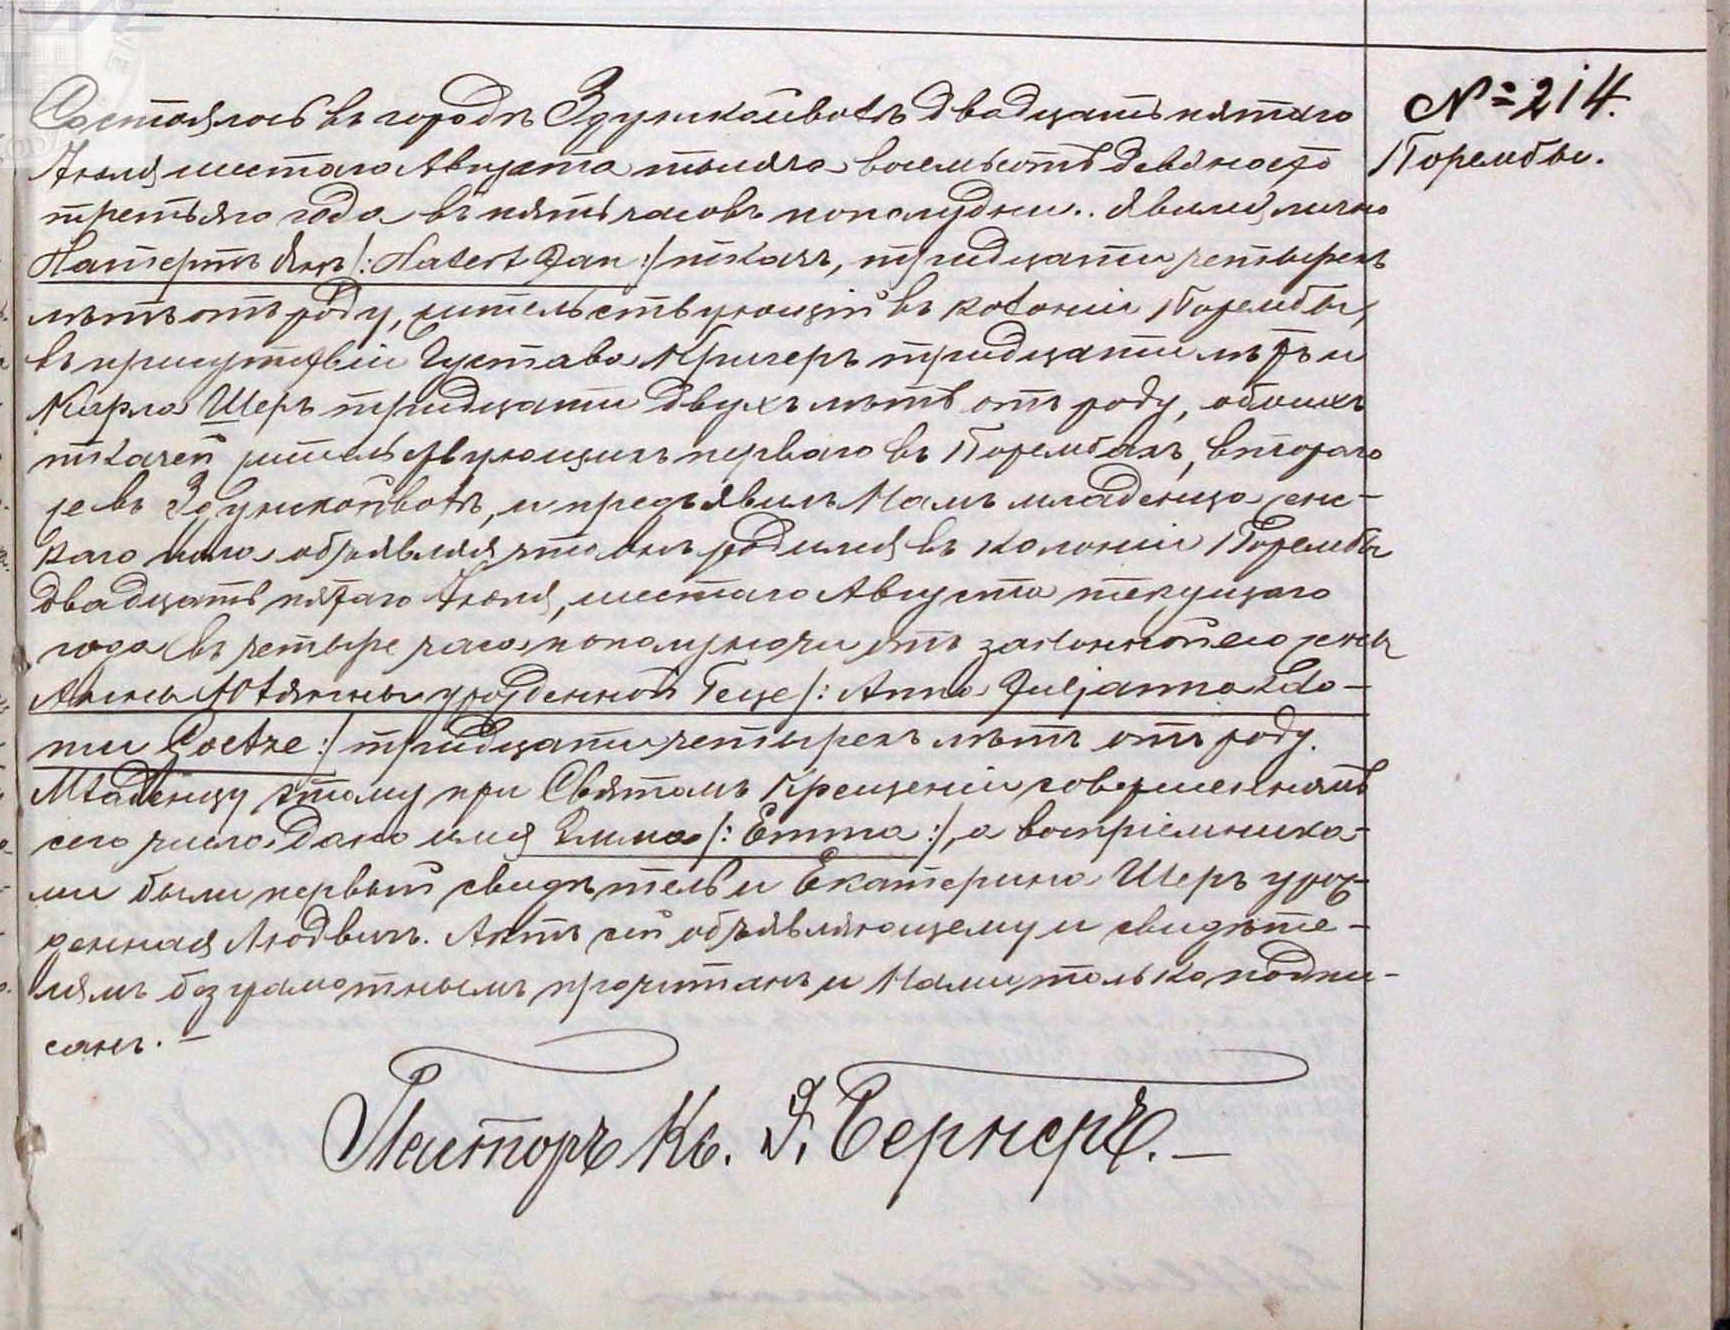 № 214.
Порембы.
Состоялось въ городѣ Здунскойволѣ двадцать пятаго
Іюля шестаго Августа тысяча восемьсотъ девяносто
третьяго года въ пять часовъ пополудни. Явился лично
Натертъ Янъ /: Natert Jan :/ ткачъ, тридцати четырехъ
лѣтъ отъ роду, жительствующій въ колоніи Порембы,
въ присутствіи Густава Кригеръ тридцати лѣтъ и
Карла Шеръ тридцати двухъ лѣтъ отъ роду, обоихъ
ткачей жительствующихъ перваго въ Порембахъ, втораго
же въ Здунскойволѣ, и предъявилъ Намъ младенца жен-
каго пола объявляя что онъ родился въ колоніи Порембы
двадцать пятаго Іюля, шестаго Августа текущаго
года въ четыре часа пополуночи отъ законной его жены
Анны Юлянны урожденной Геце /: Anna Juljanna zdo-
mu Goetze :/ тридцати четырехъ лѣтъ отъ роду.
Младенцу этому при Святомъ Крещеніи совершенномъ
сего числа дано имя Эмма /: Emma :/, а воспріемника-
ми были первый свидѣтель и Екатерина Шеръ урож-
денная Людвигъ. Актъ сей объявляющему и свидѣте-
лямъ безграмотнымъ прочитанъ и Нами только подпи-
санъ. —
Пасторъ Кс. Э. Бернеръ. —